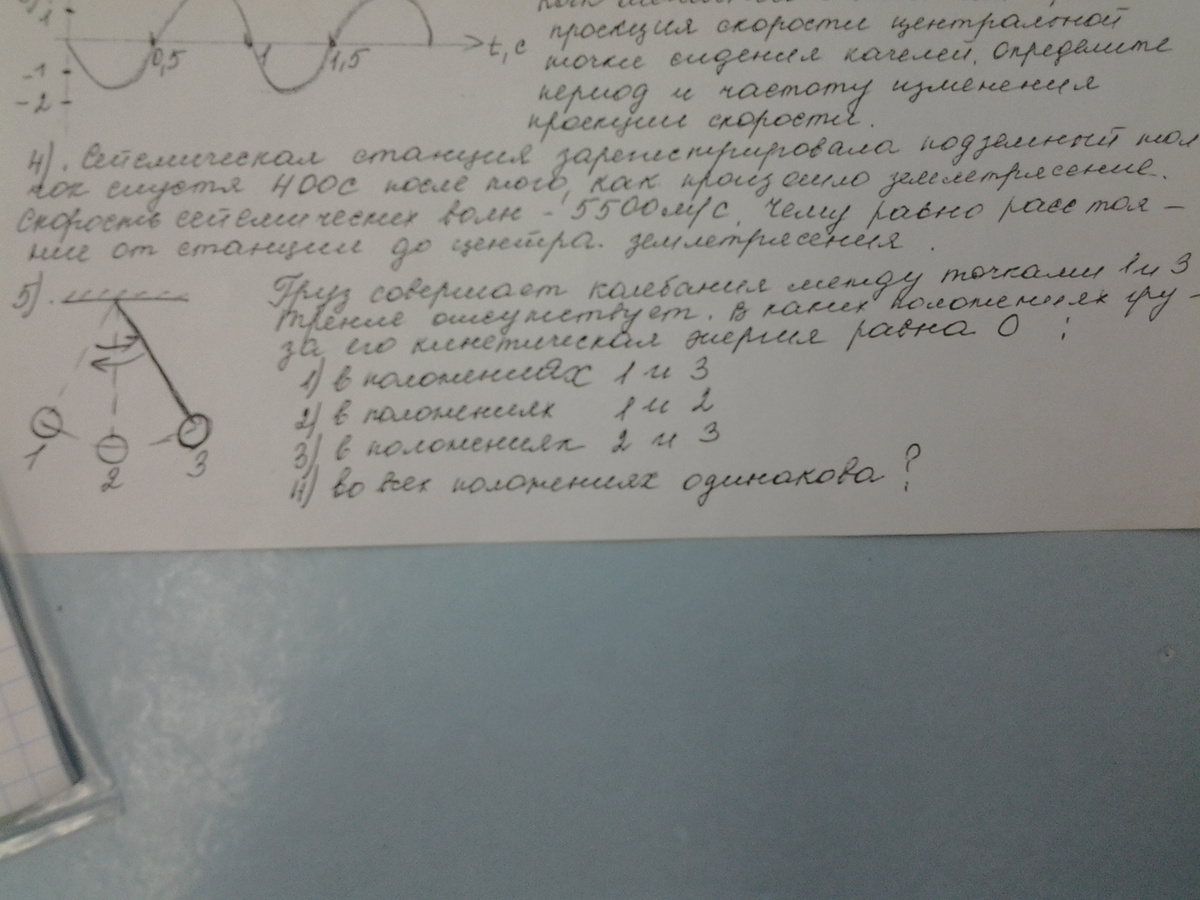 1
0,5
1
1,5
t, c
-1
-2
проекция скорости центральной
точки сидения качелей. Определите
период и частоту изменения
проекции скорости.
4). Сейсмическая станция зарегистрировала подземный тол
чок спустя 400с после того, как произошло землетрясение.
Скорость сейсмических волн - 5500м/с. Чему равно расстоя-
ние от станции до центра. землетрясения.
5).
Груз совершает колебания между точками 1 и 3
Трение отсутствует. В каких положениях гру-
за его кинетическая энергия равна 0 ;
1) в положениях 1 и 3
2) в положениях 1 и 2
3) в положениях 2 и 3
4) во всех положениях одинакова?
1
2
3